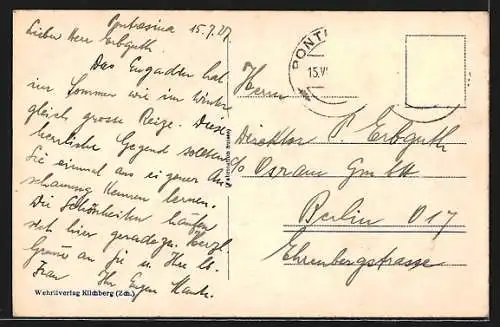 Pontresina 15.7.27
Lieber Herr Erbguth.
Das Engadin hat
im Sommer wie im Winter
gleich grosse Reize. Diese
herrliche Gegend sollten
Sie einmal aus eigener An-
schauung kennen lernen.
Die Schönheiten häufen
sich hier geradezu. Herzl.
Grüsse an Sie u. Ihre lb.
Frau Ihr Eugen
Wehrliverlag Kilchberg (Zch.)
PONT
15.V
Herrn
Direktor P. Erbguth
c/o Osram GmbH
Berlin O17
Ehrenbergstrasse